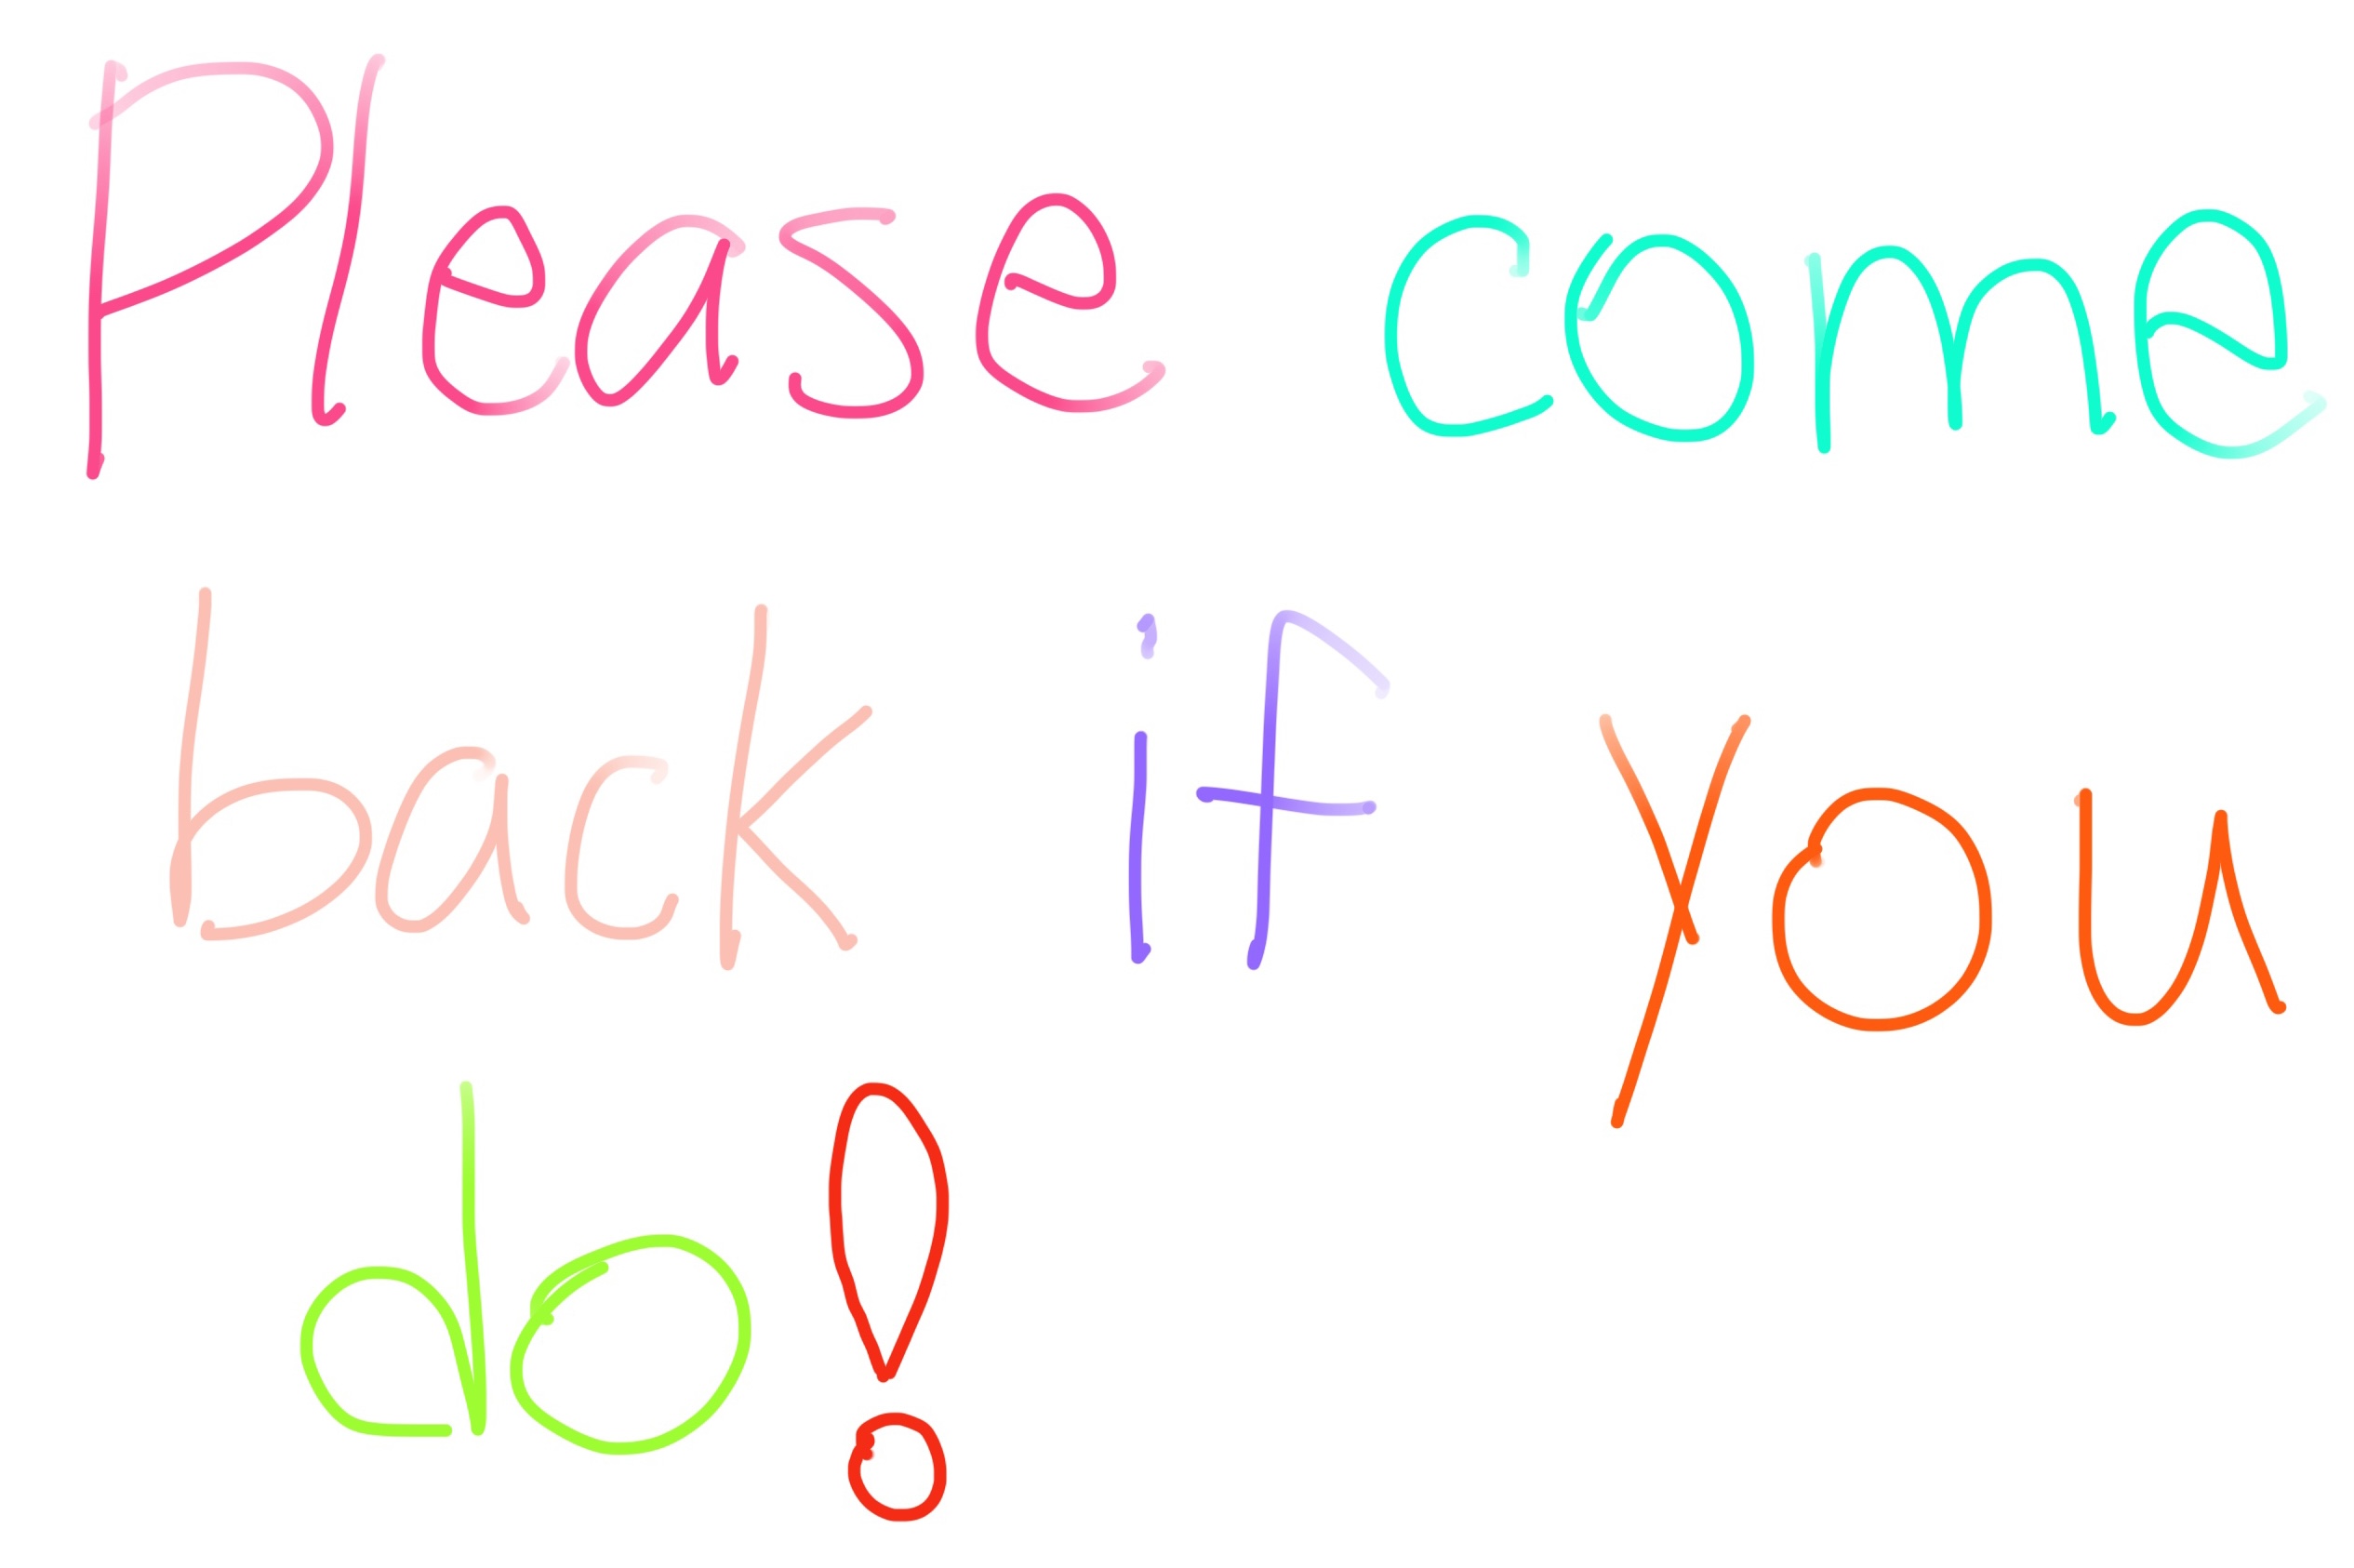 Please come
back if you
do!